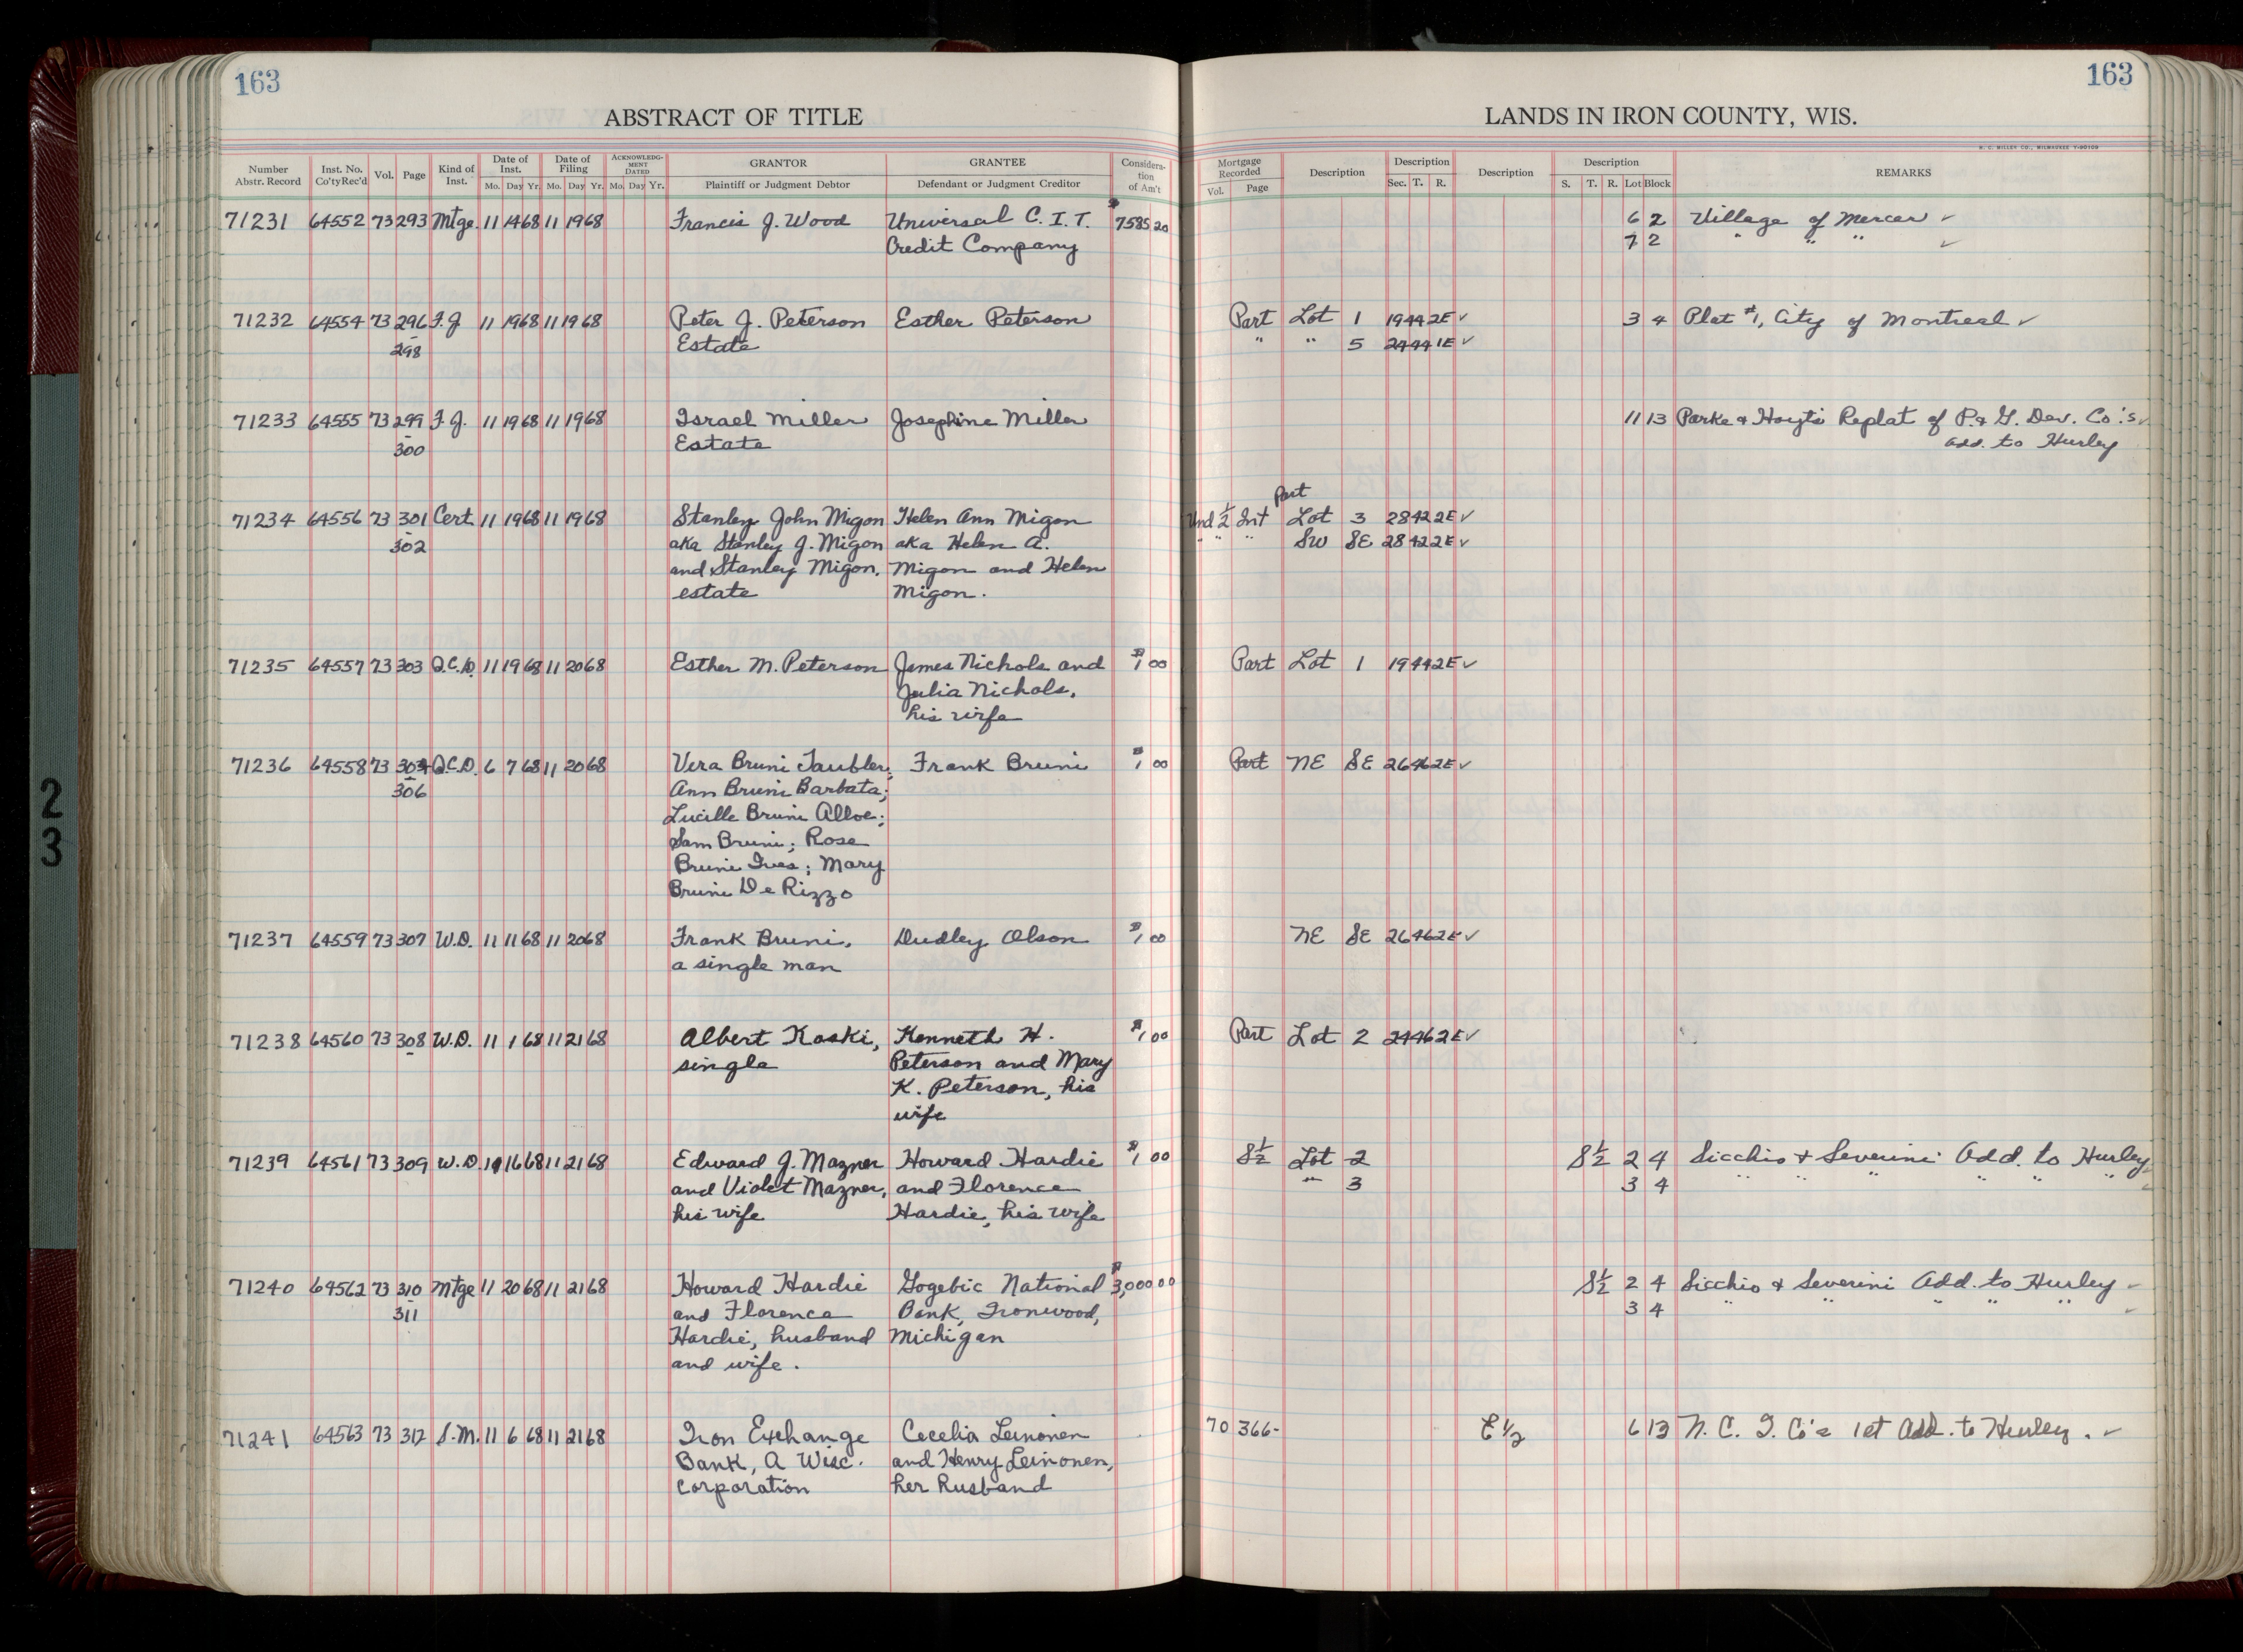 163
163
ABSTRACT OF TITLE
LANDS IN IRON COUNTY, WIS.
H. C. MILLER CO., MILWAUKEE
Number Abstr. Record | Inst. No. Co'ty Rec'd | Vol. | Page | Kind of Inst. | Date of Inst. Mo. Day Yr. | Date of Filing Mo. Day Yr. | ACKNOWLEDGMENT DATED Mo. Day Yr. | GRANTOR Plaintiff or Judgment Debtor | GRANTEE Defendant or Judgment Creditor | Consideration of Am't | Mortgage Recorded Vol. Page | Description | Description Sec. T. R. | Description | Description S. T. R. Lot Block | REMARKS
71231 64552 73 293 Mtge. 11 14 68 11 19 68 Francis J. Wood Universal C. I. T. $7585 20 6 2 Village of Mercer ✓
Credit Company 7 2 " " " ✓
71232 64554 73 296 F.J 11 19 68 11 19 68 Peter J. Peterson Esther Peterson Part Lot 1 19 44 2E ✓ 3 4 Plat #1, City of Montreal ✓
- 298 Estate " " 5 24 44 1E ✓
71233 64555 73 299 F.J. 11 19 68 11 19 68 Israel Miller Josephine Miller 11 13 Parke & Hoyt's Replat of P. & G. Dev. Co.'s ✓
- 300 Estate Add. to Hurley
Part
71234 64556 73 301 Cert. 11 19 68 11 19 68 Stanley John Migon Helen Ann Migon Und ½ Int Lot 3 28 42 2E ✓
- 302 aka Stanley J. Migon aka Helen A. " " " SW SE 28 42 2E ✓
and Stanley Migon, Migon and Helen
estate Migon.
71235 64557 73 303 Q.C.D. 11 19 68 11 20 68 Esther M. Peterson James Nichols and $1 00 Part Lot 1 19 44 2E ✓
Julia Nichols,
his wife
71236 64558 73 304 Q.C.D. 6 7 68 11 20 68 Vera Bruni Taubler; Frank Bruni $1 00 Part NE SE 26 46 2E ✓
- 306 Ann Bruni Barbata;
Lucille Bruni Alloe;
Sam Bruni; Rose
Bruni Ives; Mary
Bruni De Rizzo
71237 64559 73 307 W.D. 11 11 68 11 20 68 Frank Bruni, Dudley Olson $1 00 NE SE 26 46 2E ✓
a single man
71238 64560 73 308 W.D. 11 1 68 11 21 68 Albert Koski, Kenneth H. $1 00 Part Lot 2 24 46 2E ✓
single Peterson and Mary
K. Peterson, his
wife
71239 64561 73 309 W.D. 11 16 68 11 21 68 Edward J. Mazner Howard Hardie $1 00 S½ Lot 2 S½ 2 4 Sicchio & Severini Add. to Hurley
and Violet Mazner, and Florence " 3 3 4 " " " " " "
his wife Hardie, his wife
71240 64562 73 310 Mtge 11 20 68 11 21 68 Howard Hardie Gogebic National $3,000 00 S½ 2 4 Sicchio & Severini Add. to Hurley ✓
- 311 and Florence Bank, Ironwood, 3 4 " " " " " ✓
Hardie, husband Michigan
and wife.
71241 64563 73 312 S.M. 11 6 68 11 21 68 Iron Exchange Cecelia Leinonen 70 366- E½ 6 13 N. C. I. Co's 1st Add. to Hurley. ✓
Bank, A Wisc. and Henry Leinonen,
corporation her husband
2
3